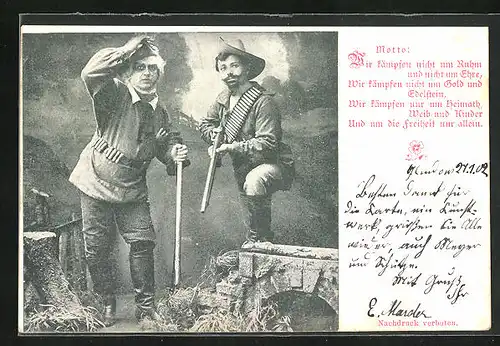 Motto:
Wir kämpfen nicht um Ruhm
und nicht um Ehre,
Wir kämpfen nicht um Gold und
Edelstein.
Wir kämpfen nur um Heimath,
Weib und Kinder
Und um die Freiheit nur allein.
27.1.02
Besten Dank für
die Karte, ein Kunst-
werk, grüßen Sie Alle
wieder, auch Meyer
und Schulze.
Mit Gruß
Ihr
E.
Nachdruck verboten.